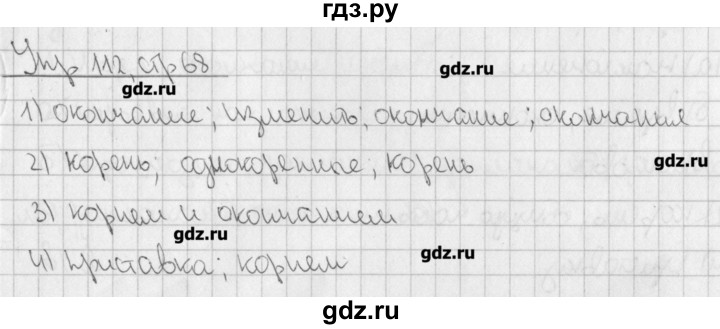 гдз.ру
Упр 112, стр 68
gdz.ru
gdz.ru
1) окончание; изменить; окончание; окончания
2) корень; однокоренные, корень
gdz.ru
3) корнем и окончанием
gdz.ru
4) приставка; корнем
gdz.ru
gdz.ru